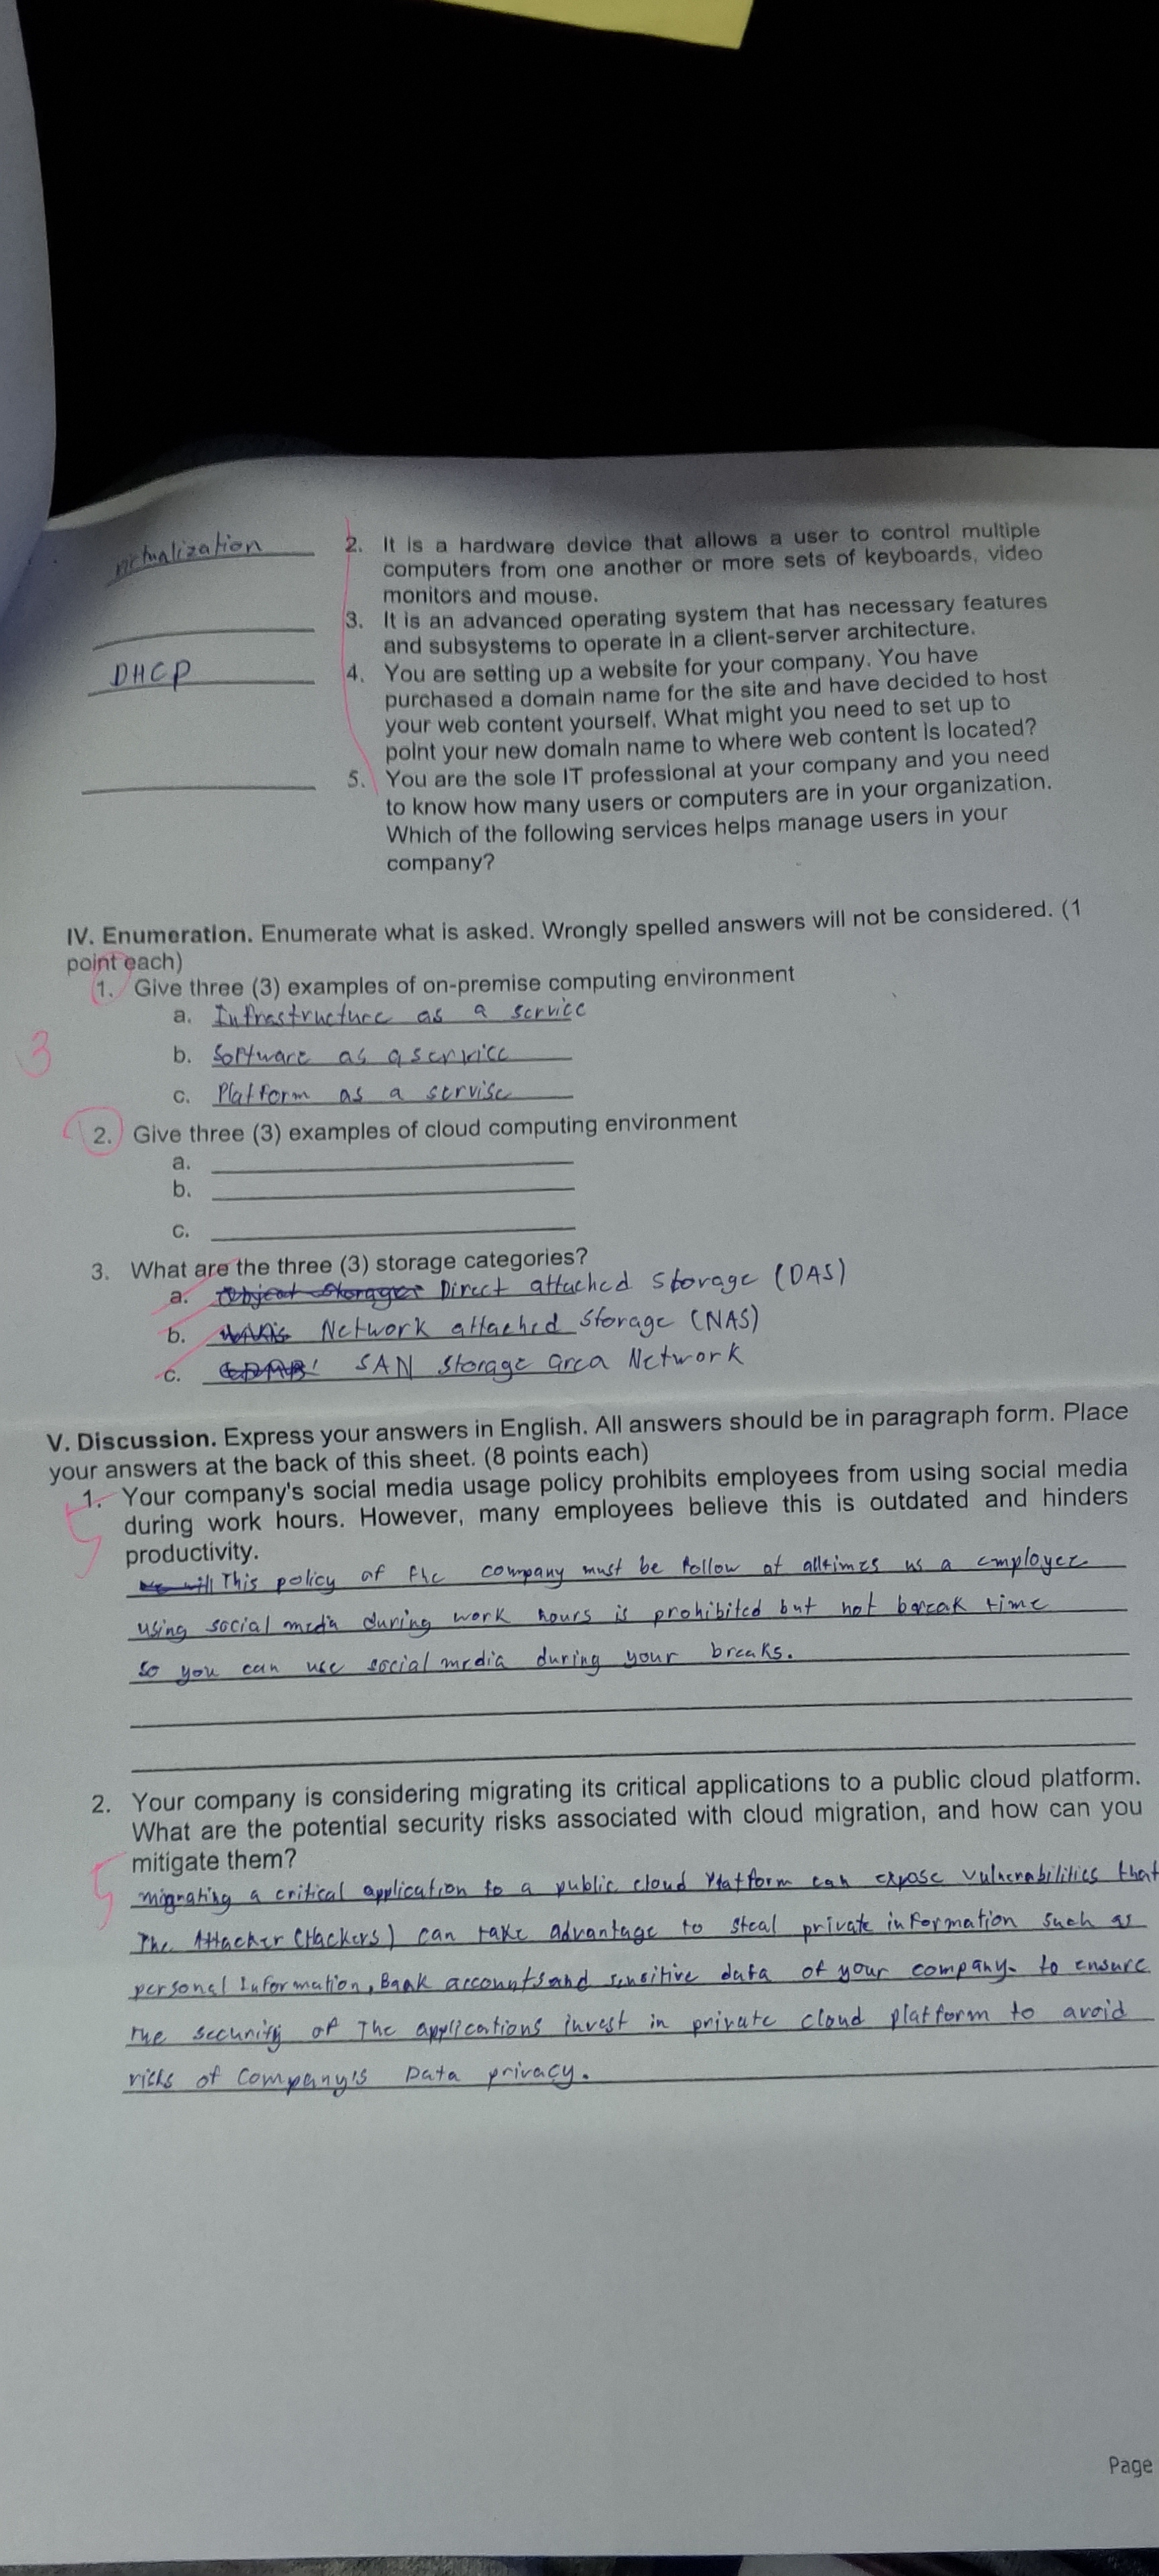 virtualization
2. It is a hardware device that allows a user to control multiple
computers from one another or more sets of keyboards, video
monitors and mouse.
3. It is an advanced operating system that has necessary features
and subsystems to operate in a client-server architecture.
DHCP
4. You are setting up a website for your company. You have
purchased a domain name for the site and have decided to host
your web content yourself. What might you need to set up to
point your new domain name to where web content is located?
5. You are the sole IT professional at your company and you need
to know how many users or computers are in your organization.
Which of the following services helps manage users in your
company?
IV. Enumeration. Enumerate what is asked. Wrongly spelled answers will not be considered. (1
point each)
1. Give three (3) examples of on-premise computing environment
a. Infrastructure as a service
3
b. Software as a service
c. Platform as a servise
2. Give three (3) examples of cloud computing environment
a.
b.
c.
3. What are the three (3) storage categories?
a. Object Storage Direct attached Storage (DAS)
b. Network attached Storage (NAS)
c. SAN Storage area Network
V. Discussion. Express your answers in English. All answers should be in paragraph form. Place
your answers at the back of this sheet. (8 points each)
1. Your company's social media usage policy prohibits employees from using social media
5
during work hours. However, many employees believe this is outdated and hinders
productivity.
This policy of the company must be follow at alltimes as a employee
using social media during work hours is prohibited but not break time
so you can use social media during your breaks.
2. Your company is considering migrating its critical applications to a public cloud platform.
What are the potential security risks associated with cloud migration, and how can you
mitigate them?
5
migrating a critical application to a public cloud Platform can expose vulnerabilities that
The Attacker (Hackers) can take advantage to steal private information such as
personal Information, Bank accounts and sensitive data of your company. to ensure
the security of The applications invest in private cloud platform to avoid
ricks of Company's Data privacy.
Page